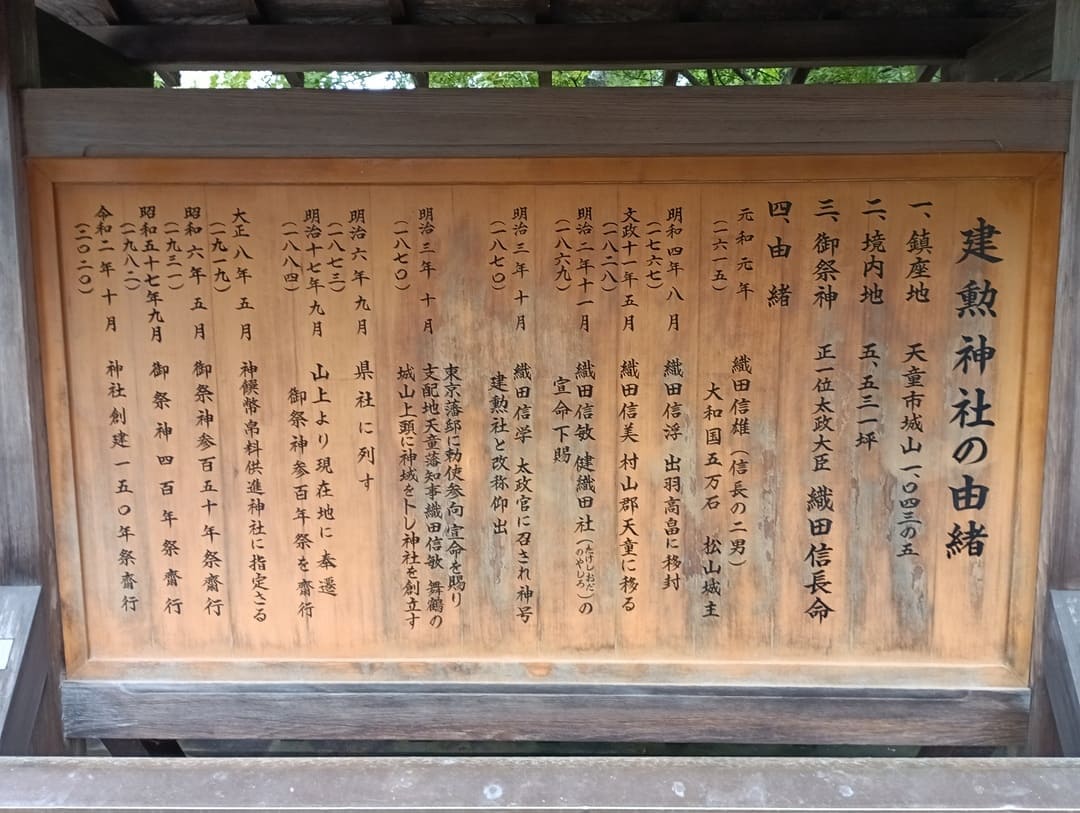 建勲神社の由緒
一、鎮座地　天童市城山一、〇四三の五
二、境内地　五、五三一坪
三、御祭神　正一位太政大臣　織田信長命
四、由緒
元和元年　織田信雄（信長の二男）
（一六一五）　大和国五万石　松山城主
明和四年八月　織田信浮　出羽高畠に移封
（一七六七）
文政十一年五月　織田信美　村山郡天童に移る
（一八二八）
明治二年十一月　織田信敏　健織田社（たけしおだのやしろ）の
（一八六九）　宣命下賜
明治三年十月　織田信学　太政官に召され神号
（一八七〇）　建勲社と改称仰出
明治三年十月　東京藩邸に勅使参向　宣命を賜り
（一八七〇）　支配地天童藩知事織田信敏　舞鶴の
城山上頭に神域をトレ神社を創立す
明治六年九月　県社に列す
（一八七三）
明治十七年九月　山上より現在地に奉遷
（一八八四）　御祭神参百年祭を齋行
大正八年五月　神饌幣帛料供進神社に指定さる
（一九一九）
昭和六年五月　御祭神参百五十年祭齋行
（一九三一）
昭和五十七年九月　御祭神四百年祭齋行
（一九八二）
令和二年十月　神社創建一五〇年祭齋行
（二〇二〇）